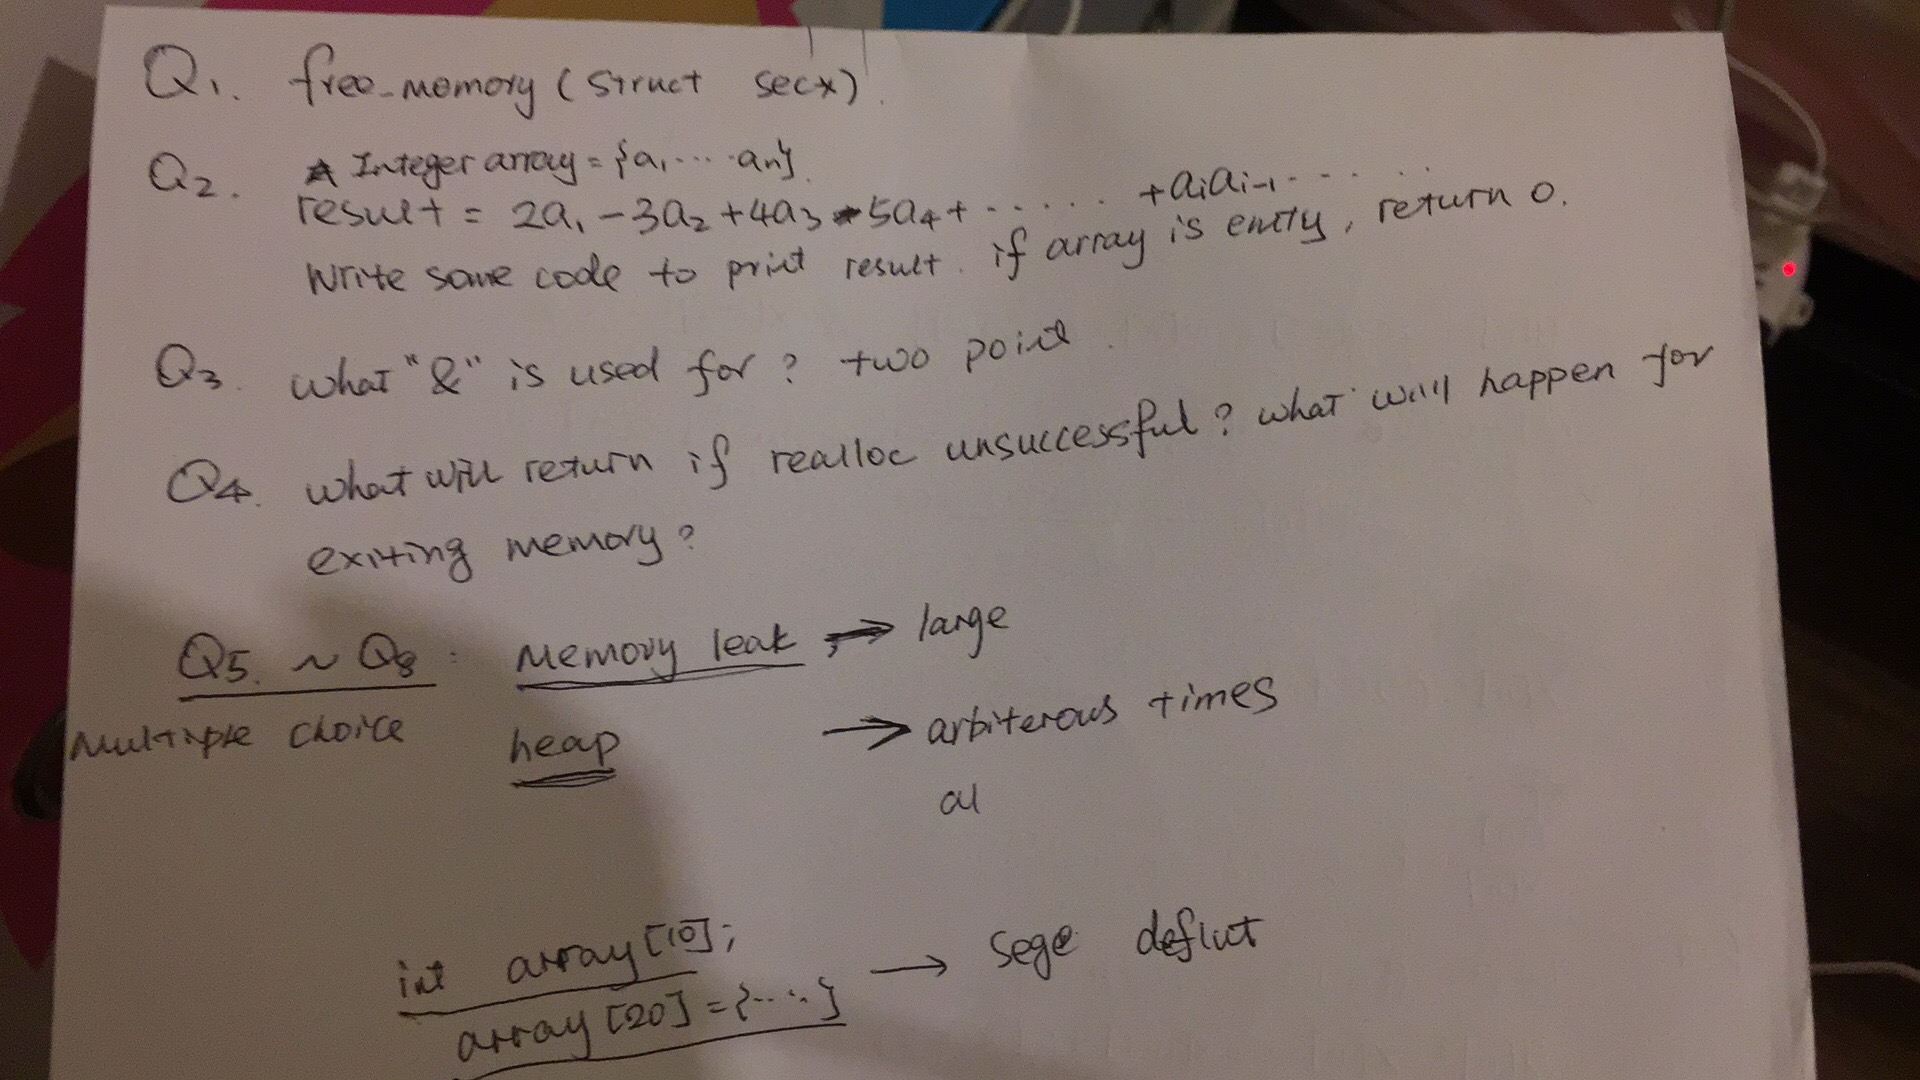 Q1. free_memory (struct secx).
Q2. Integer array = {a1 ... an}.
result = 2a1 - 3a2 + 4a3 - 5a4 + ...... + aiai-1 ......
Write some code to print result. if array is emty, return 0.
Q3. what "&" is used for? two point.
Q4. what will return if realloc unsuccessful? what will happen for
exiting memory?
Q5. ~ Q8: Memory leak, → large
Multiple choice heap → arbiterous times
al
int array[10];
array[20] = {....} → sege